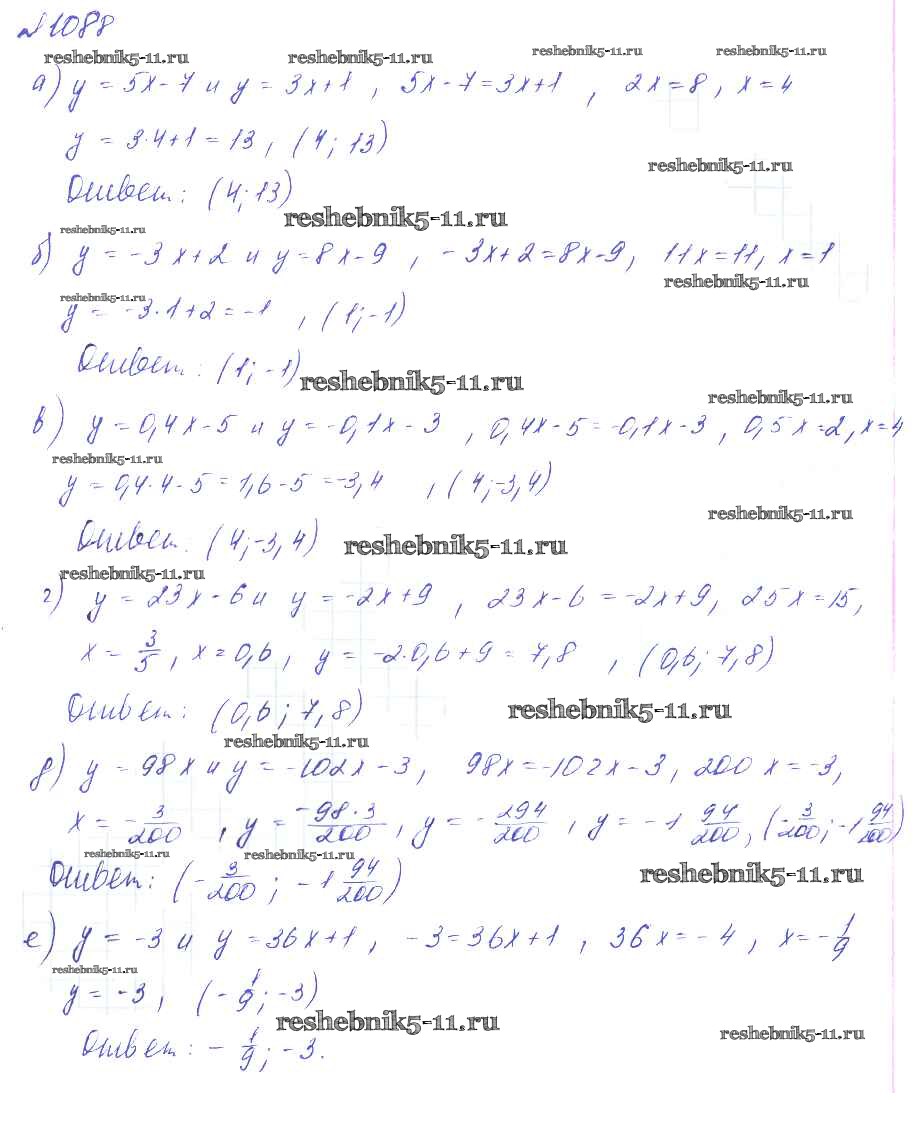 №1088
reshebnik5-11.ru reshebnik5-11.ru reshebnik5-11.ru reshebnik5-11.ru
а) y = 5x - 7 и y = 3x + 1 , 5x - 7 = 3x + 1 , 2x = 8 , x = 4
y = 3·4 + 1 = 13 , (4; 13)
reshebnik5-11.ru
Ответ: (4; 13)
reshebnik5-11.ru
reshebnik5-11.ru
б) y = -3x + 2 и y = 8x - 9 , -3x + 2 = 8x - 9, 11x = 11, x = 1
reshebnik5-11.ru
reshebnik5-11.ru
y = -3·1 + 2 = -1 , (1; -1)
Ответ: (1; -1)
reshebnik5-11.ru
reshebnik5-11.ru
в) y = 0,4x - 5 и y = -0,1x - 3 , 0,4x - 5 = -0,1x - 3 , 0,5x = 2, x = 4
reshebnik5-11.ru
y = 0,4·4 - 5 = 1,6 - 5 = -3,4 , (4; -3,4)
reshebnik5-11.ru
Ответ: (4; -3,4)
reshebnik5-11.ru
reshebnik5-11.ru
г) y = 23x - 6 и y = -2x + 9 , 23x - 6 = -2x + 9, 25x = 15,
x = 3/5 , x = 0,6 , y = -2·0,6 + 9 = 7,8 , (0,6; 7,8)
Ответ: (0,6; 7,8)
reshebnik5-11.ru
reshebnik5-11.ru
д) y = 98x и y = -102x - 3 , 98x = -102x - 3 , 200x = -3,
x = -3/200 , y = -98·3/200 , y = -294/200 , y = -1 94/200 , (-3/200; -1 94/200)
reshebnik5-11.ru reshebnik5-11.ru
Ответ: (-3/200; -1 94/200)
reshebnik5-11.ru
е) y = -3 и y = 36x + 1 , -3 = 36x + 1 , 36x = -4 , x = -1/9
reshebnik5-11.ru
y = -3 , (-1/9; -3)
reshebnik5-11.ru
reshebnik5-11.ru
Ответ: -1/9; -3.